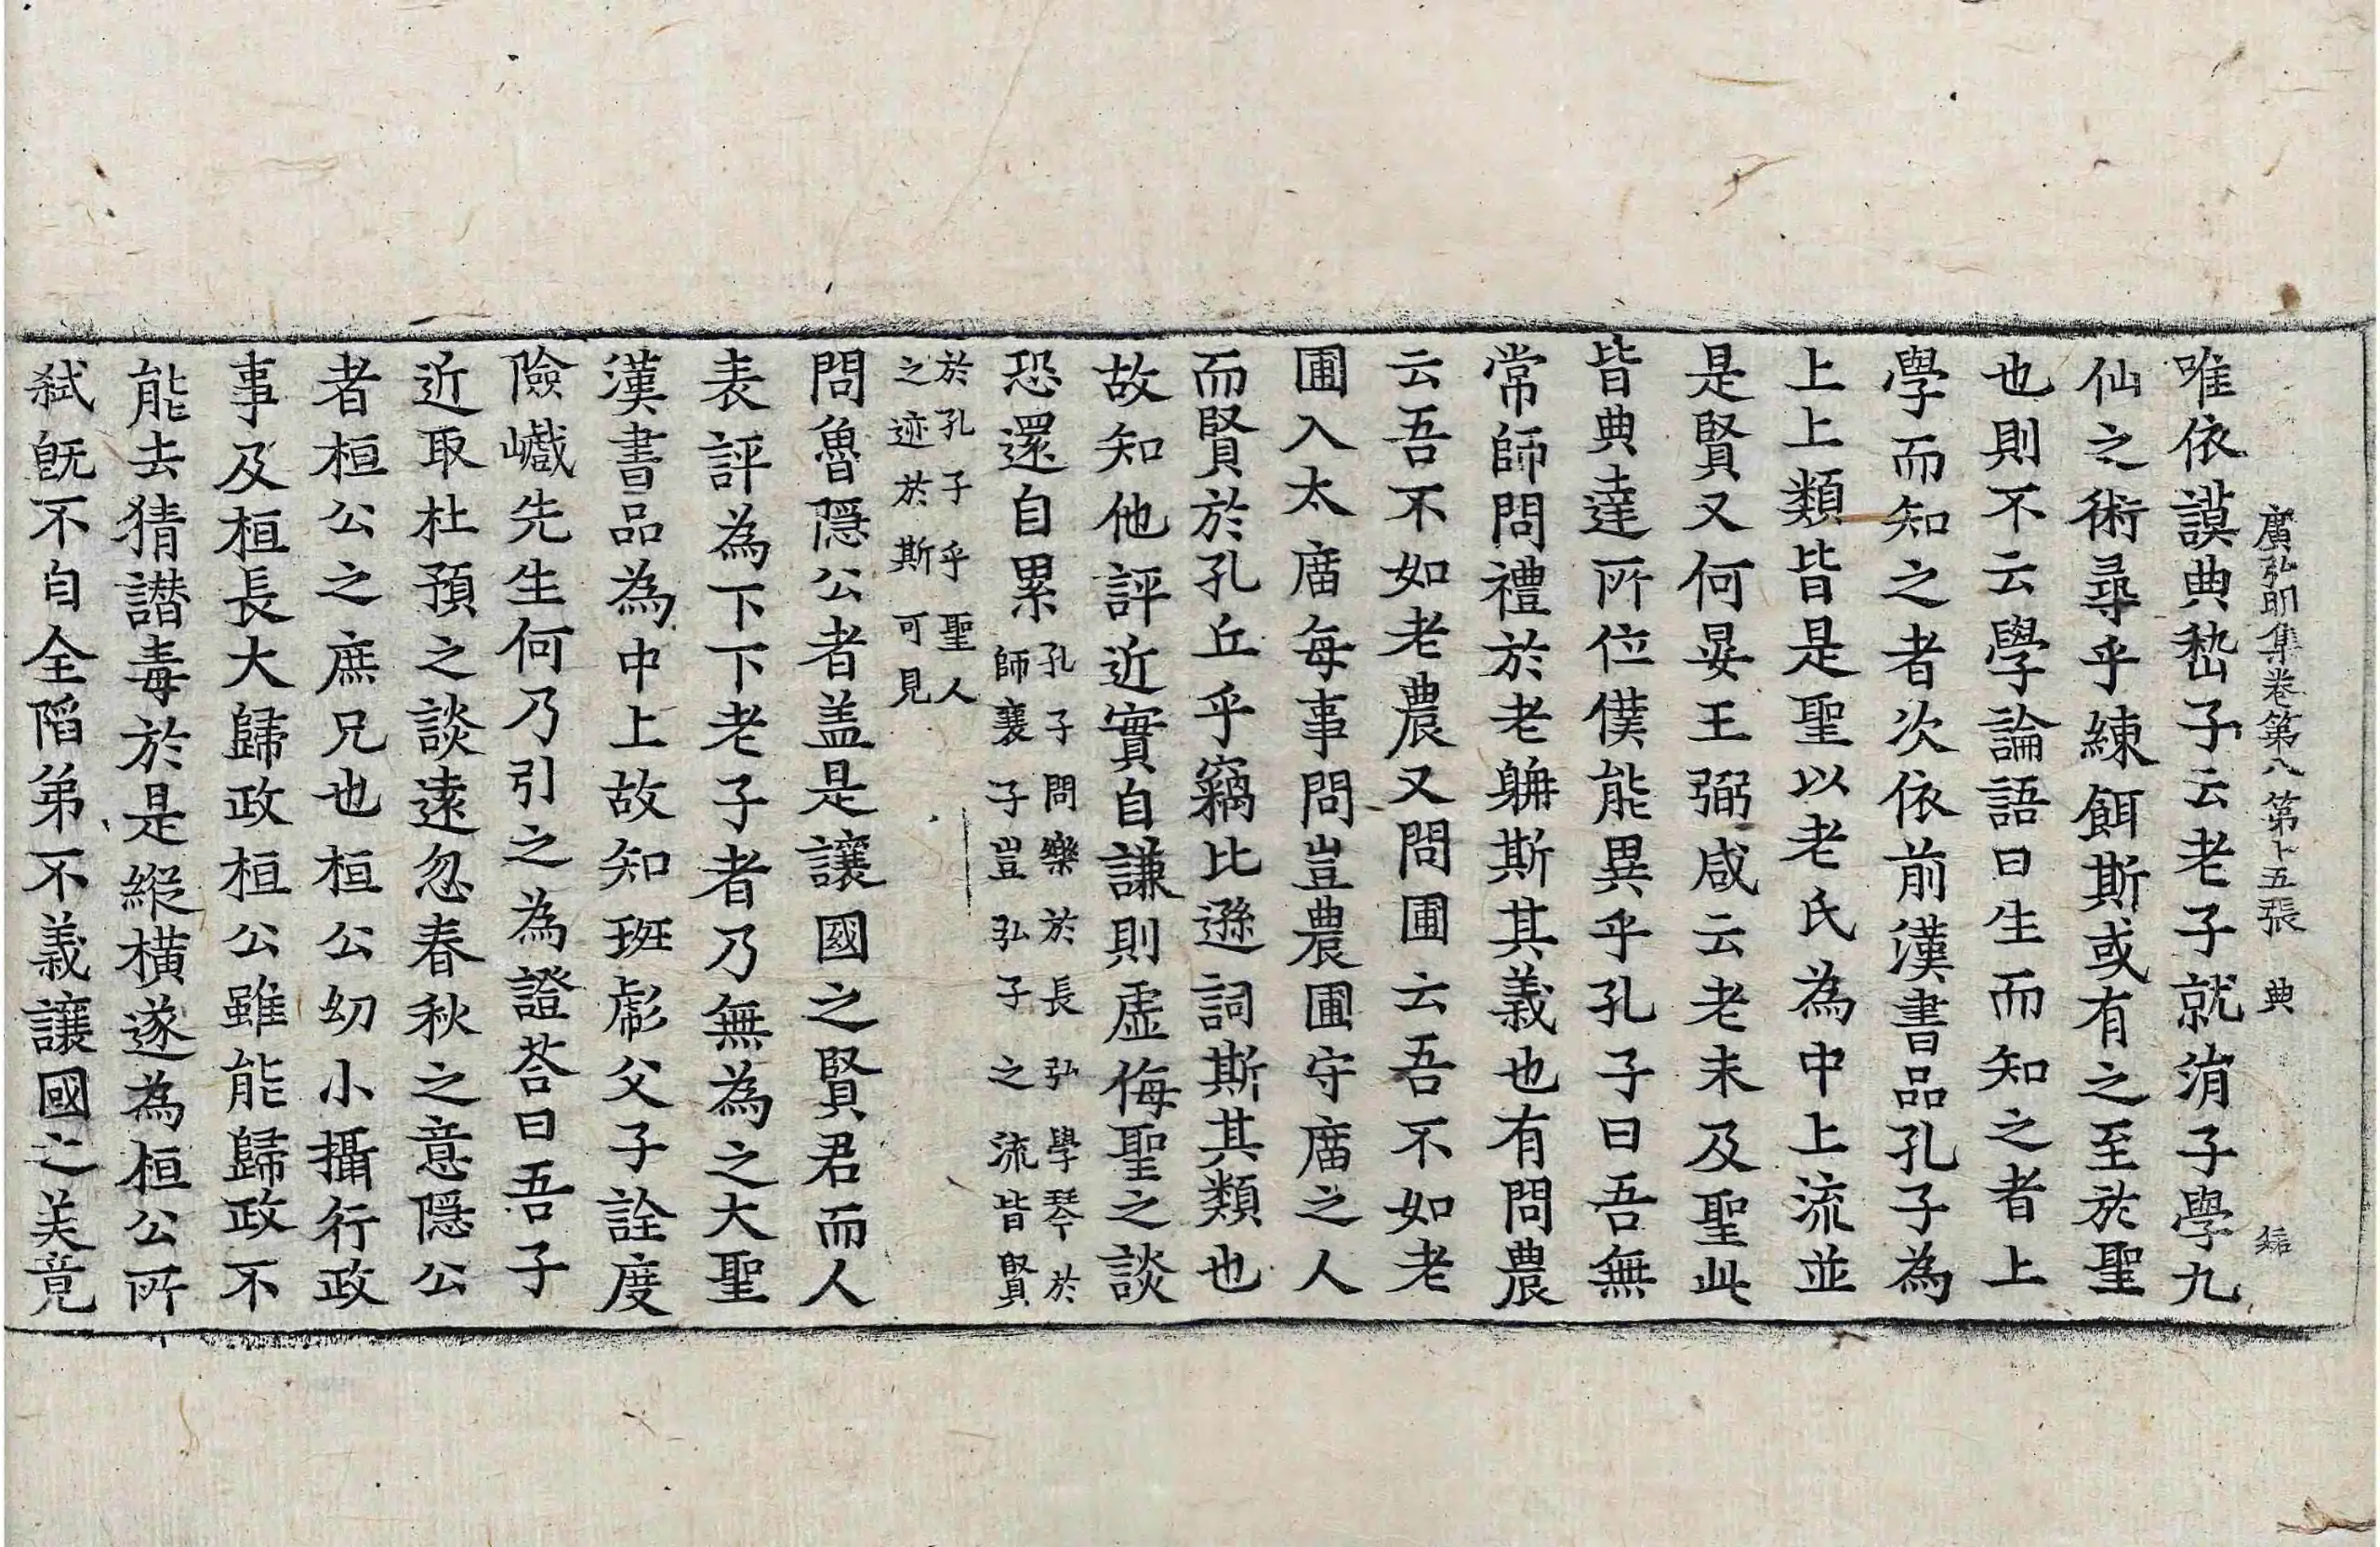 廣弘明集卷第八第十五張 典
唯依謨典嵆子云老子就涓子學九
仙之術尋乎練餌斯或有之至於聖
也則不云學論語曰生而知之者上
學而知之者次依前漢書品孔子為
上上類皆是聖以老氏為中上流並
是賢又何晏王弼咸云老未及聖此
皆典達所位僕能異乎孔子曰吾無
常師問禮於老聃斯其義也有問農
云吾不如老農又問圃云吾不如老
圃入太廟每事問豈農圃守廟之人
而賢於孔丘乎竊比遜詞斯其類也
故知他評近實自謙則虛侮聖之談
恐還自累孔子問樂於長弘學琴於
師襄子豈弘子之流皆賢
於孔子乎聖人
之迹於斯可見
問魯隱公者盖是讓國之賢君而人
表評為下下老子者乃無為之大聖
漢書品為中上故知班彪父子詮度
險巇先生何乃引之為證荅曰吾子
近取杜預之談遠忽春秋之意隱公
者桓公之庶兄也桓公幼小攝行政
事及桓長大歸政桓公雖能歸政不
能去猜譛毒於是縱橫遂為桓公所
弑旣不自全陷弟不義讓國之美竟